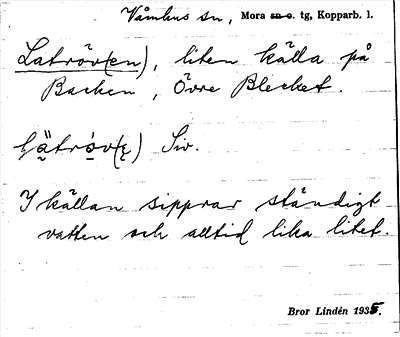 Våmhus sn, Mora sn o. tg, Kopparb. l.
Latröv(en), liten källa på
Backen, Övre Blecket.
Siv.
I källan sipprar ständigt
vatten och alltid lika litet.
Bror Lindén 1935.